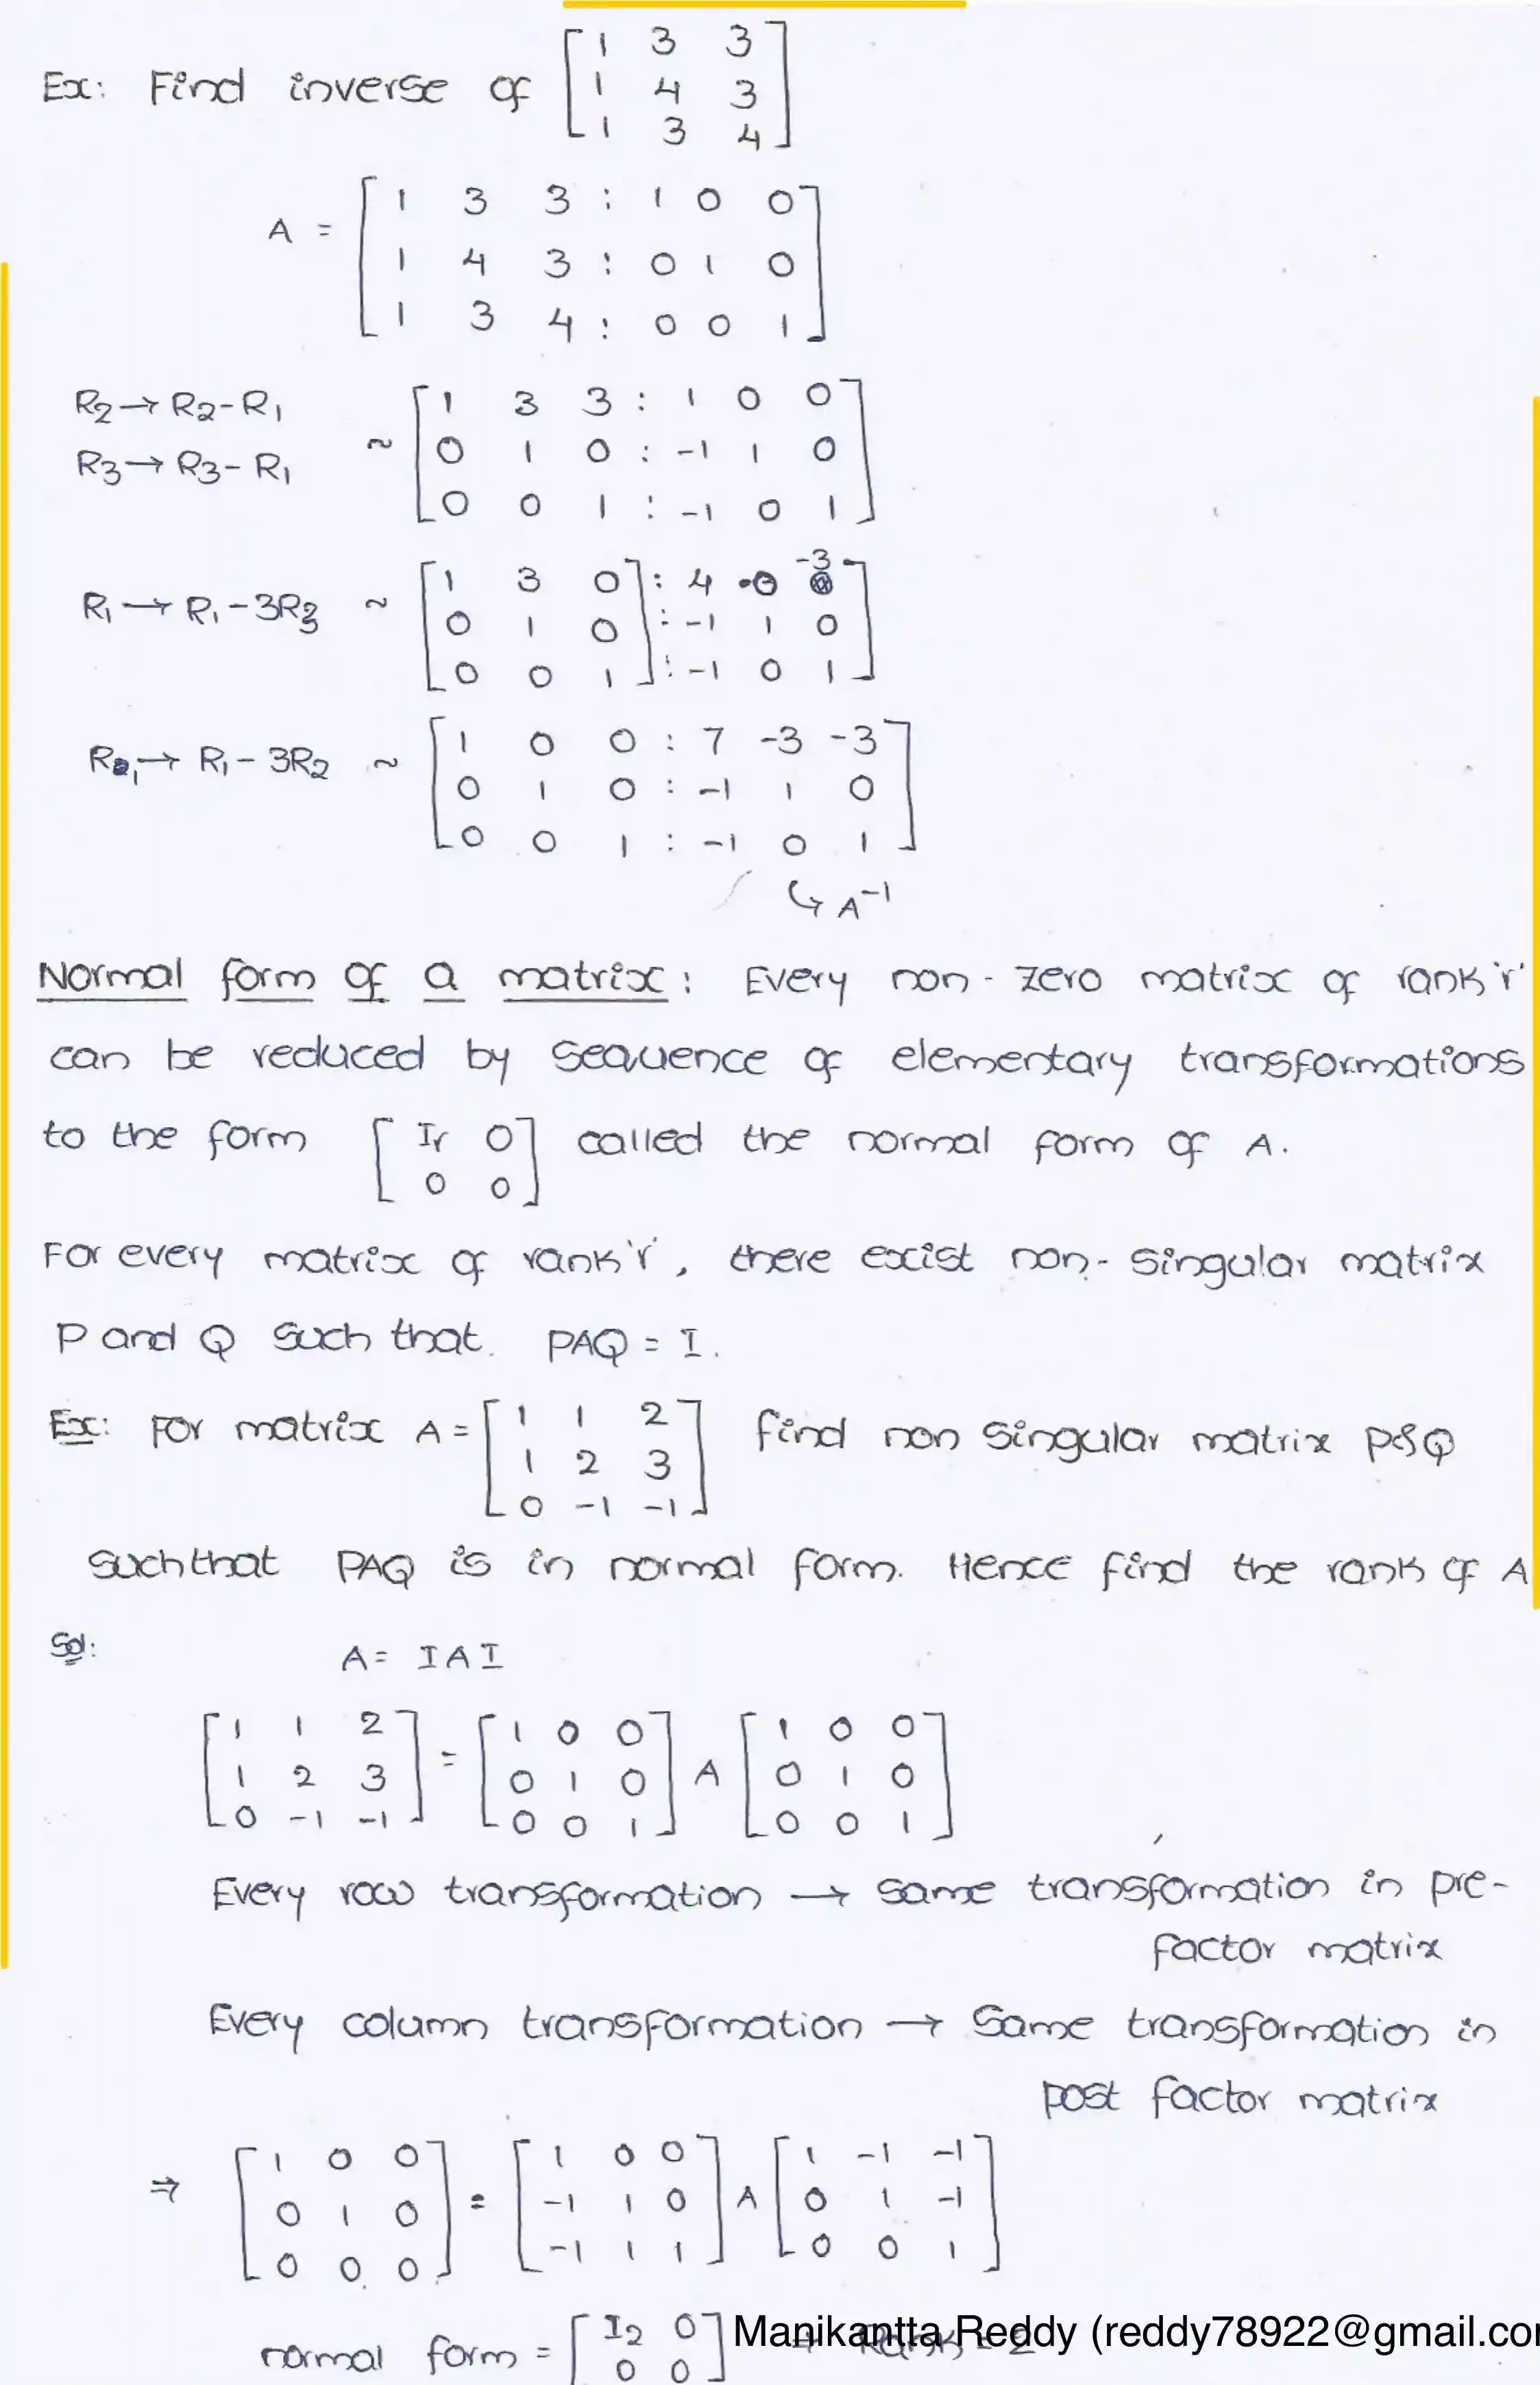 Ex: Find inverse of [1 3 3
1 4 3
1 3 4]
A = [1 3 3 : 1 0 0
1 4 3 : 0 1 0
1 3 4 : 0 0 1]
R2→R2-R1
R3→R3-R1 ~ [1 3 3 : 1 0 0
0 1 0 : -1 1 0
0 0 1 : -1 0 1]
R1→R1-3R3 ~ [1 3 0] : 4 0 -3
0 1 0 : -1 1 0
0 0 1 : -1 0 1]
R1→R1-3R2 ~ [1 0 0 : 7 -3 -3
0 1 0 : -1 1 0
0 0 1 : -1 0 1]
↳ A⁻¹
Normal form of a matrix: Every non-zero matrix of rank 'r'
can be reduced by sequence of elementary transformations
to the form [Ir 0
0 0] called the normal form of A.
For every matrix of rank 'r', there exist non-singular matrix
P and Q such that. PAQ = I.
Ex: For matrix A = [1 1 2
1 2 3
0 -1 -1] find non singular matrix P&Q
such that PAQ is in normal form. Hence find the rank of A
Sol:
A = IAI
[1 1 2
1 2 3
0 -1 -1] = [1 0 0
0 1 0
0 0 1] A [1 0 0
0 1 0
0 0 1]
Every row transformation → same transformation in pre-
factor matrix
Every column transformation → Same transformation in
post factor matrix
⇒ [1 0 0
0 1 0
0 0 0] = [1 0 0
-1 1 0
-1 1 1] A [1 -1 -1
0 1 -1
0 0 1]
normal form = [I2 0
0 0] ⇒ Rank = 2
Manikantta Reddy (reddy78922@gmail.co